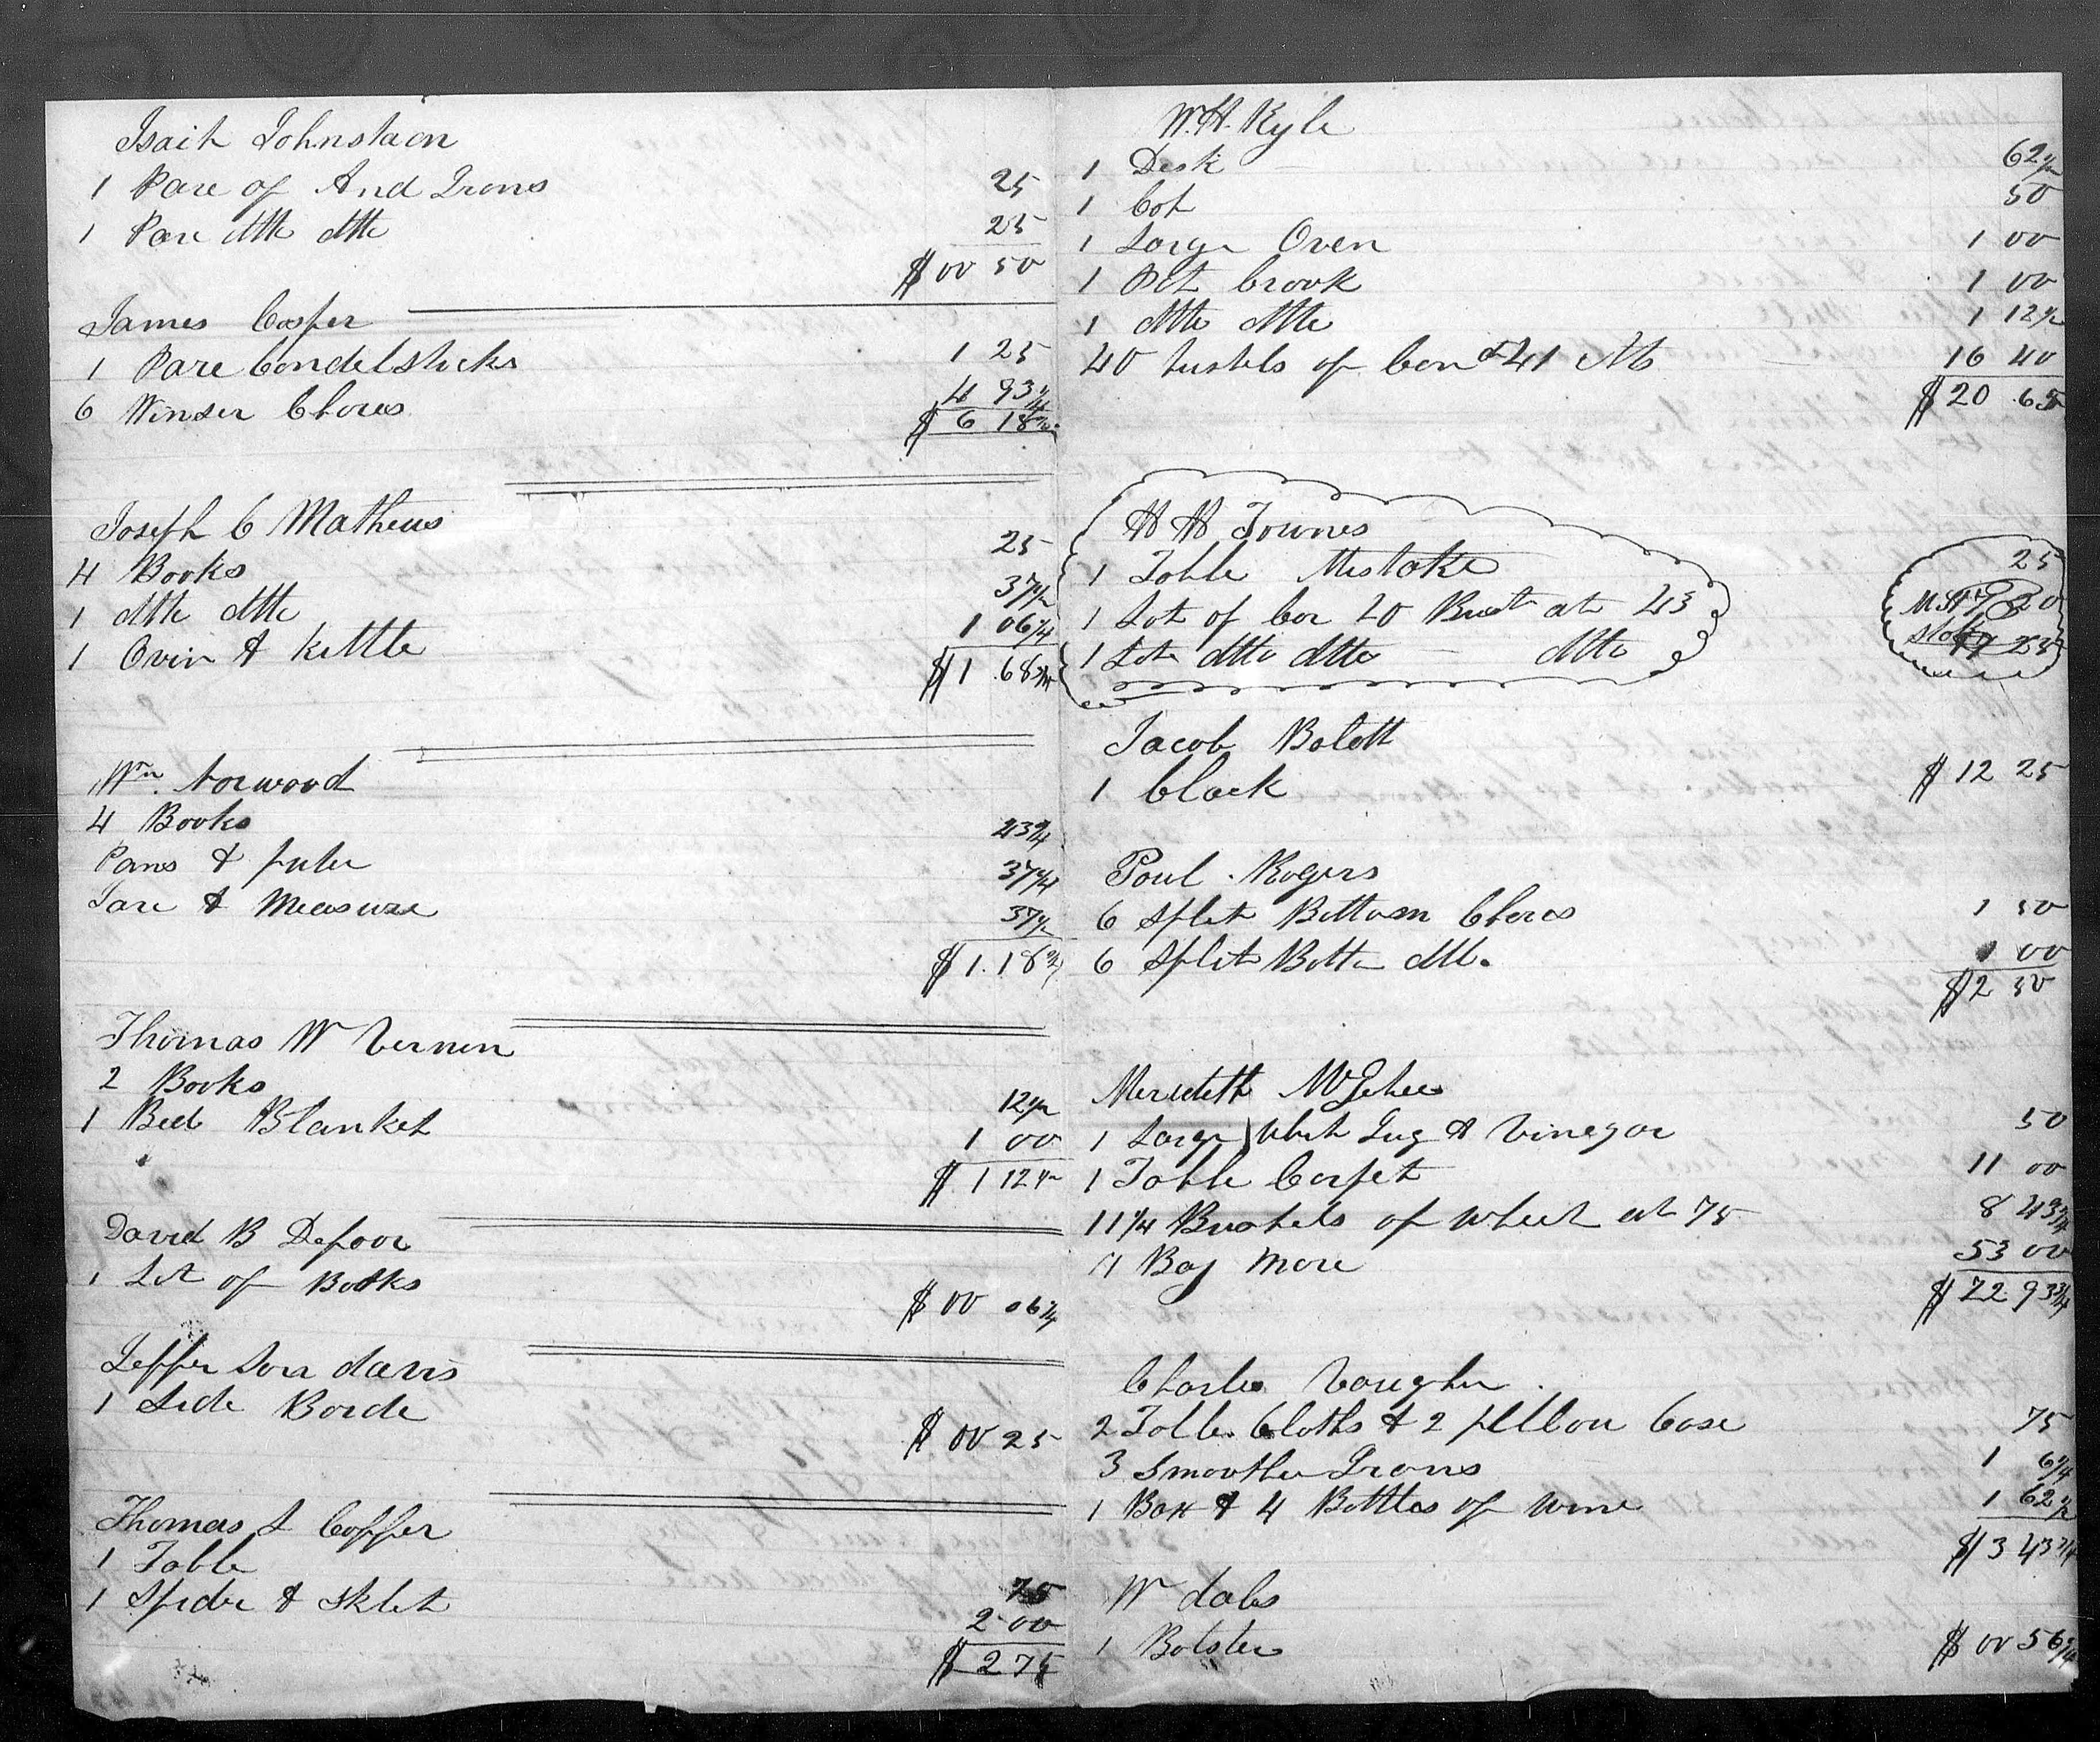 Isaih Johnstaon
1 Pare of And Irons 25
1 Pare dtto dtto 25
$ 00 50
James Cosper
1 Pare Candelsticks 1 25
6 Winser Chares 4 93 3/4
$ 6 18 3/4
Joseph C Matheus
4 Books 25
1 dtto dtto 37 1/2
1 Ovin & kittle 1 06 1/4
$ 1 68 3/4
Wm. Norwood
4 Books 43 3/4
Pans & puter 37 1/2
Jare & Measure 37 1/2
$ 1.18 3/4
Thomas W Vernon
2 Books 12 1/2
1 Bed Blanket 1 00
$ 1 12 1/2
David B Defoor
1 Lot of Books $ 00 06 1/4
Jeffer Son davis
1 Side Borde $ 00 25
Thomas S Cosper
1 Table 75
1 Spider & Sklet 2 00
$ 2 75
W. H. Kyle
1 Desk 62 1/2
1 Cot 50
1 Large Oven 1 00
1 Pot Crook 1 00
1 dtto dtto 1 12 1/2
40 bushels of Corn at 41 16 40
$ 20 65
H H Townes
1 Table Mistake 25
1 Lot of Cor 20 Bust at 43
1 Lot dtto dtto dtto
Jacob Belott
1 Clock $ 12 25
Poul Rogers
6 Split Bottom Chares 1 50
6 Split Bottm dtto. 1 00
$ 2 50
Merideth McGehee
1 Large Jug & Vinegar 50
1 Table Carpet 11 00
11 1/4 Bushels of wheet at 75 8 43 3/4
1 Bay Mare 53 00
$ 72 93 3/4
Charles Vaughn
2 Table Cloths & 2 pillow Case 75
3 Smoothe Irons 1 6 1/4
1 Box & 4 Bottles of wine 1 62 1/2
$ 3 43 3/4
W dabs
1 Bolster $ 00 56 1/4